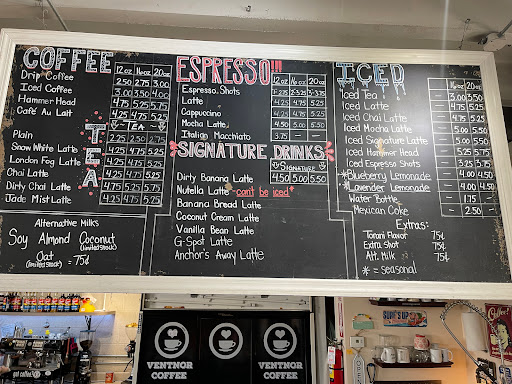 COFFEE
12 oz 16 oz 20 oz
Drip Coffee 2.50 2.75 3.00
Iced Coffee 3.00 3.50 4.00
Hammer Head 4.75 5.25 5.75
Café Au Lait 4.25 4.75 5.25
TEA
Plain 2.25 2.50 2.75
Snow White Latte 4.25 4.75 5.25
London Fog Latte 4.25 4.75 5.25
Chai Latte 4.25 4.75 5.25
Dirty Chai Latte 4.75 5.25 5.75
Jade Mist Latte 4.25 4.75 5.25
Alternative Milks
Soy Almond Coconut
(limited stock)
Oat = 75¢
(limited stock)
ESPRESSO!!!
12 oz 16 oz 20 oz
Espresso Shots
Latte 4.25 4.75 5.25
Cappuccino 4.25 4.75 5.25
Mocha Latte 4.50 5.00 5.50
Italian Macchiato 3.75 — —
*SIGNATURE DRINKS*
Signature
Dirty Banana Latte 4.50 5.00 5.50
Nutella Latte - can't be iced*
Banana Bread Latte
Coconut Cream Latte
Vanilla Bean Latte
G-Spot Latte
Anchor's Away Latte
ICED
16 oz 20 oz
Iced Tea — 3.00 3.50
Iced Latte — 4.75 5.25
Iced Chai Latte — 4.75 5.25
Iced Mocha Latte — 5.00 5.50
Iced Signature Latte — 5.00 5.50
Iced Hammer Head — 5.25 5.75
Iced Espresso Shots — 3.25 3.75
*Blueberry Lemonade — 4.00 4.50
*Lavender Lemonade — 4.00 4.50
Water Bottle — 1.75 —
Mexican Coke — 2.50 —
Extras:
Torani Flavor 75¢
Extra Shot 75¢
Alt. Milk 75¢
* = seasonal
VENTNOR
COFFEE
VENTNOR
COFFEE
OPEN
SURF'S UP
Coffee!
got coffee?